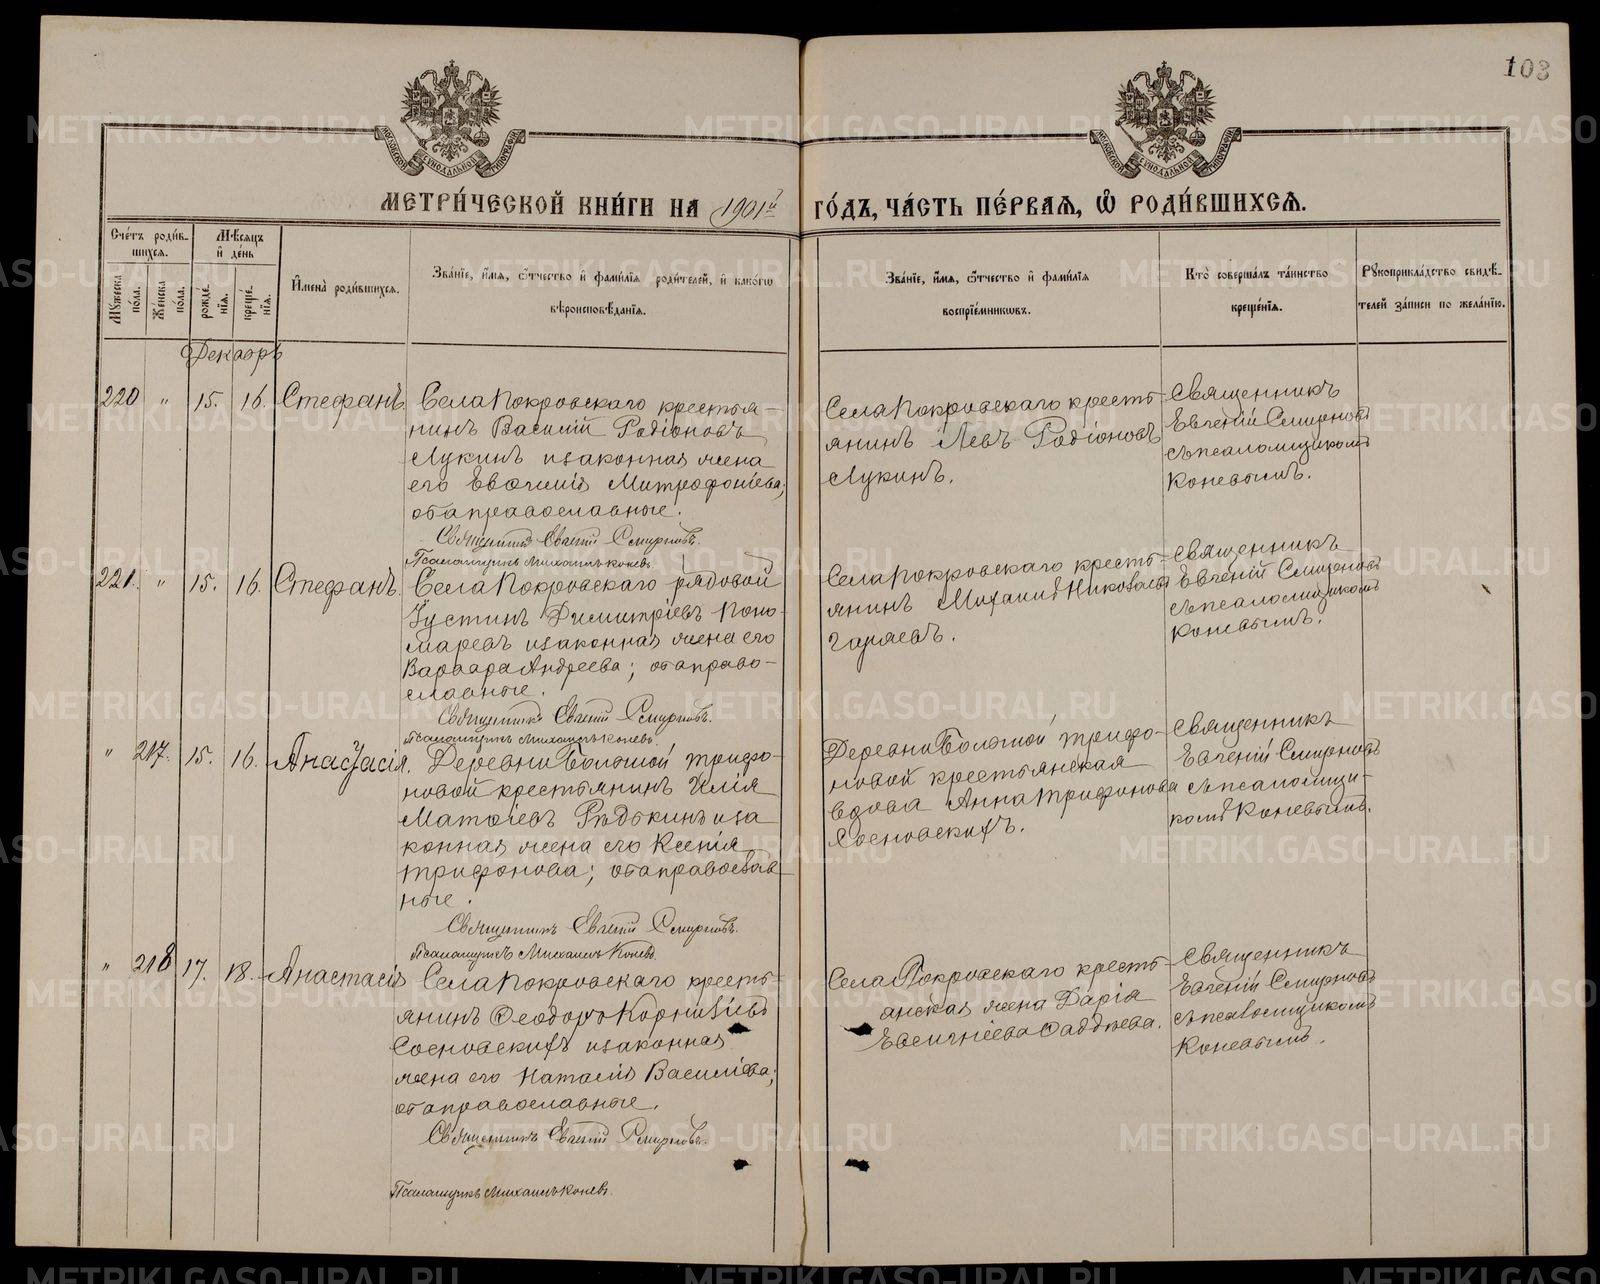 103
МОСКОВСКОЙ СѴНОДАЛЬНОЙ ТИПОГРАФІИ
МОСКОВСКОЙ СѴНОДАЛЬНОЙ ТИПОГРАФІИ
МЕТРИ́ЧЕСКОЙ КНИ́ГИ НА 1901й ГО́ДЪ, ЧА́СТЬ ПЕ́РВАѦ, Ѽ РОДИ́ВШИХСѦ.
Сче́тъ роди́в-
шихся.
Мѣ́сяцъ
и҆ де́нь
Мꙋ́жеска
по́ла.
Же́нска
по́ла.
рожде́-
нїя.
креще́-
нїя.
И҆мена̀ роди́вшихся.
Зва́нїе, и҆́мя, ѻ҆́тчество и҆ фами́лїя роди́телей, и҆ како́гѡ
вѣроисповѣ́данїя.
Зва́нїе, и҆́мя, ѻ҆́тчество и҆ фами́лїя
воспрїе́мникѡвъ.
Кто̀ соверша́лъ та́инство
креще́нїя.
Рꙋкоприкла́дство свидѣ́-
телей за́писи по жела́нїю.
Декабрь
220 " 15. 16. Стефанъ
Села Покровскаго крестья-
нинъ Василій Родіоновъ
Лукинъ и законная жена
его Евгенія Митрофаніева;
оба православные.
Священникъ Евгеній Смирновъ.
Псаломщикъ Михаилъ Коневъ
Села Покровскаго кресть-
янинъ Левъ Родіоновъ
Лукинъ.
Священникъ
Евгеній Смирновъ
съ псаломщикомъ
Коневымъ.
221. " 15. 16. Стефанъ.
Села Покровскаго рядовой
Іустинъ Димитріевъ Поно-
маревъ и законная жена его
Варвара Андреева; оба право-
славные.
Священникъ Евгеній Смирновъ.
Псаломщикъ Михаилъ Коневъ.
Села Покровскаго кресть-
янинъ Михаилъ Николаевъ
Священникъ
Евгеній Смирновъ
съ псаломщикомъ
Коневымъ.
" 217. 15. 16. Анастасія.
Деревни Большой Трифо-
новой крестьянинъ Илія
Матѳіевъ Рѣдькинъ и за
конная жена его Ксенія
Трифонова; оба православ-
ные.
Священникъ Евгеній Смирновъ.
Псаломщикъ Михаилъ Коневъ
Деревни Большой Трифо-
новой крестьянская
вдова Анна Трифонова
Сосновскихъ.
Священникъ
Евгеній Смирновъ
съ псаломщи-
комъ Коневымъ.
" 218 17. 18. Анастасія
Села Покровскаго кресть-
янинъ Ѳеодоръ Корниліевъ
Сосновскихъ и законная
жена его Наталія Василіева;
оба православные.
Священникъ Евгеній Смирновъ.
Псаломщикъ Михаилъ Коневъ.
Села Покровскаго кресть-
янская жена Дарія
Евсигніева Ѳаддѣева.
Священникъ
Евгеній Смирновъ
съ псаломщикомъ
Коневымъ.
METRIKI.GASO-URAL.RU